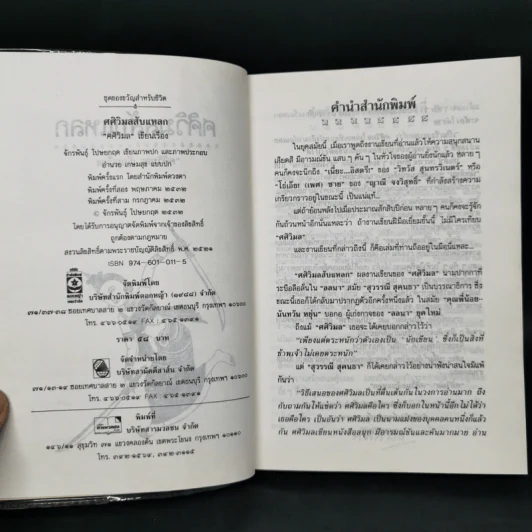 ชุดของขวัญสำหรับชีวิต
ศศิวิมลสับแหลก
"ศศิวิมล" เขียนเรื่อง
จักรพันธุ์ โปษยกฤต เขียนภาพปก และภาพประกอบ
อำนวย เกษมสุข แบบปก
พิมพ์ครั้งแรก โดยสำนักพิมพ์ดวงตา
พิมพ์ครั้งที่สอง พฤษภาคม ๒๕๓๒
พิมพ์ครั้งที่สาม กรกฎาคม ๒๕๓๒
© จักรพันธุ์ โปษยกฤต ๒๕๓๒
โดยได้รับการอนุญาตจัดพิมพ์จากเจ้าของลิขสิทธิ์
ถูกต้องตามกฎหมาย
สงวนลิขสิทธิ์ตามพระราชบัญญัติลิขสิทธิ์ พ.ศ. ๒๕๒๑
ISBN 974-601-011-5
จัดพิมพ์โดย
บริษัทสำนักพิมพ์ดอกหญ้า (๑๙๘๘) จำกัด
๗๑/๓๗-๓๘ ซอยเทศบาลสาย ๒ แขวงวัดกัลยาณ์ เขตธนบุรี กทม ๑๐๖๐๐
ราคา ๕๘ บาท
จัดจำหน่ายโดย
บริษัทสามัคคีสาส์น จำกัด
๗๑/๑๓-๑๔ ซอยเทศบาลสาย ๒ แขวงวัดกัลยาณ์ เขตธนบุรี กทม ๑๐๖๐๐
พิมพ์ที่
บริษัทสารมวลชน จำกัด
คำนำสำนักพิมพ์
ในยุคสมัยนี้ เมื่อเราพูดถึงงานเขียนที่อ่านแล้วให้ความสนุกสนาน
เสียดสี มีอารมณ์ขัน แสบ ๆ คัน ๆ ในหัวใจของผู้อ่านยิ่งนักแล้ว หลาย ๆ
คนก็คงจะนึกถึง "เนี่ยะ...อิสตรี" ของ "วิศวัส สุนทรวิเนตร์" หรือ
"โอ้เอ๋ย! เพศ ชาย" ของ "ญาณี จงวิสุทธิ์" ที่กำลังสร้างความ
เกรียวกราวอยู่ในขณะนี้ เป็นแน่แท้...
แต่ถ้าย้อนหลังไปเมื่อประมาณสักสิบปีก่อน หลายๆ คนก็คงจะรู้จัก
กันถ้วนหน้าอีกนั่นแหละว่า ถ้างานเขียนฝีมือเยี่ยมชั้นนี้ ไม่มีใครเทียบ
"ศศิวิมล"
และงานเขียนที่กล่าวถึงนี้ ก็คือเล่มที่ท่านถืออยู่ในมือนี่แหละ...
"ศศิวิมลสับแหลก" ผลงานเขียนของ "ศศิวิมล" นามปากกาที่
ระบือลือลั่นใน "ลลนา" สมัย "สุวรรณี สุคนธา" เป็นบรรณาธิการ ซึ่ง
ขณะนี้เธอก็ได้กลับมาปรากฏตัวอีกครั้งหนึ่งแล้ว ในสมัย "คุณพี่น้อย-
นันทวัน หยุ่น" บอกอ ผู้เก่งกาจของ "ลลนา" ยุคใหม่
ถึงแม้ "ศศิวิมล" เธอจะได้เคยบอกกล่าวไว้ว่า
"เพียงแต่ตระหนักว่าตัวเองเป็น 'นักเขียน' ซึ่งก็เป็นสิ่งที่
ข้าพเจ้าไม่เคยตระหนัก"
แต่ "สุวรรณี สุคนธา" ก็ได้เคยกล่าวไว้อย่างน่าฟังน่าสนใจมีแท้
กันว่า
"วิธีเสนอของศศิวิมลเป็นที่ตื่นเต้นกันในวงการอ่านมาก ถึง
กับถามกันให้แซดว่า ศศิวิมลคือใคร ซึ่งก็บอกในหน้านี้อีกไม่ได้ว่า
เธอคือใคร เป็นอันว่า ศศิวิมล เป็นนามแฝงของบุคคลคนหนึ่งก็แล้ว
กัน ศศิวิมลเขียนหนังสือสนุก มีอารมณ์ขันและคันมากมาย อ่าน